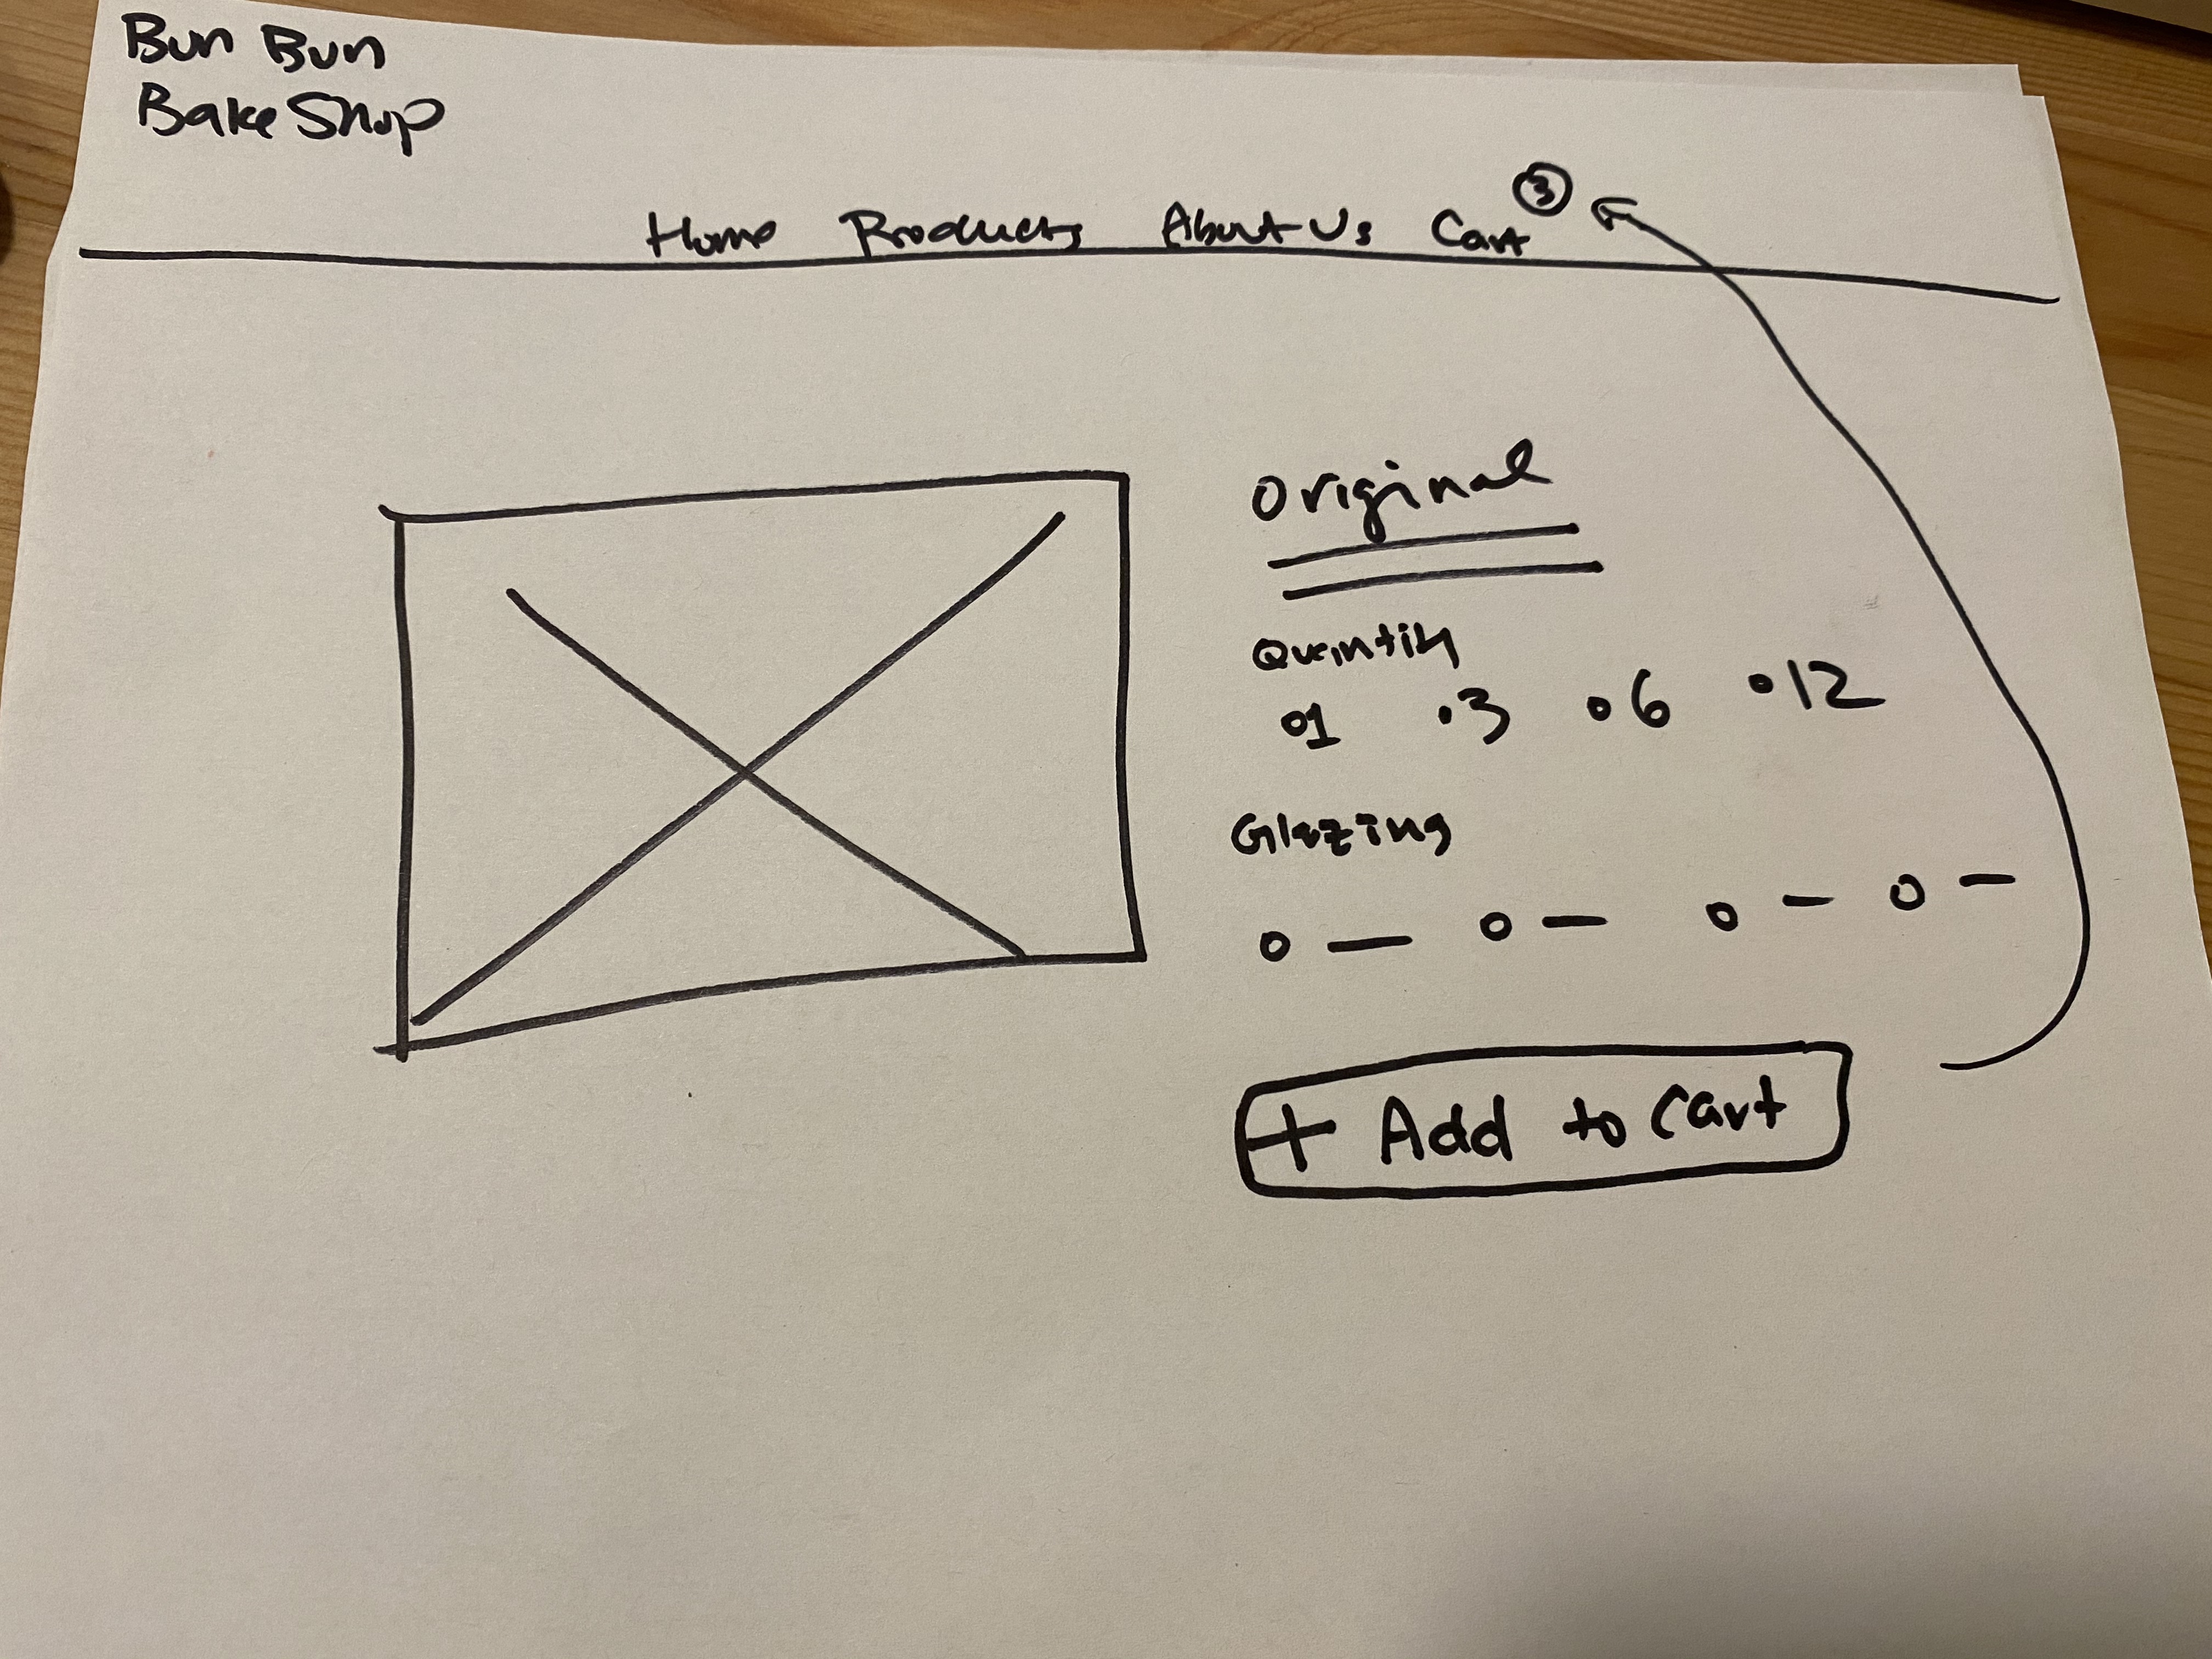 Bun Bun
Bake Shop
Home Products About Us Cart 3
Original
Quantity
1 3 6 12
Glazing
+ Add to Cart